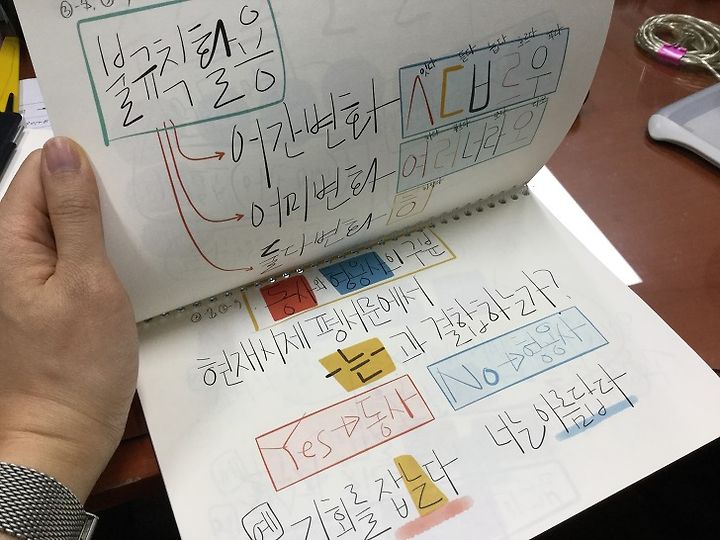 불규칙활용
어간변화 ㅅㄷㅂ르우
어미변화 여러너라오
둘다변화 ㅎ
동사와 형용사의 구분
현재시제 평서문에서
-는-과 결합하는가?
No→형용사
Yes→동사
너는 아름답다
예 기회를 잡는다